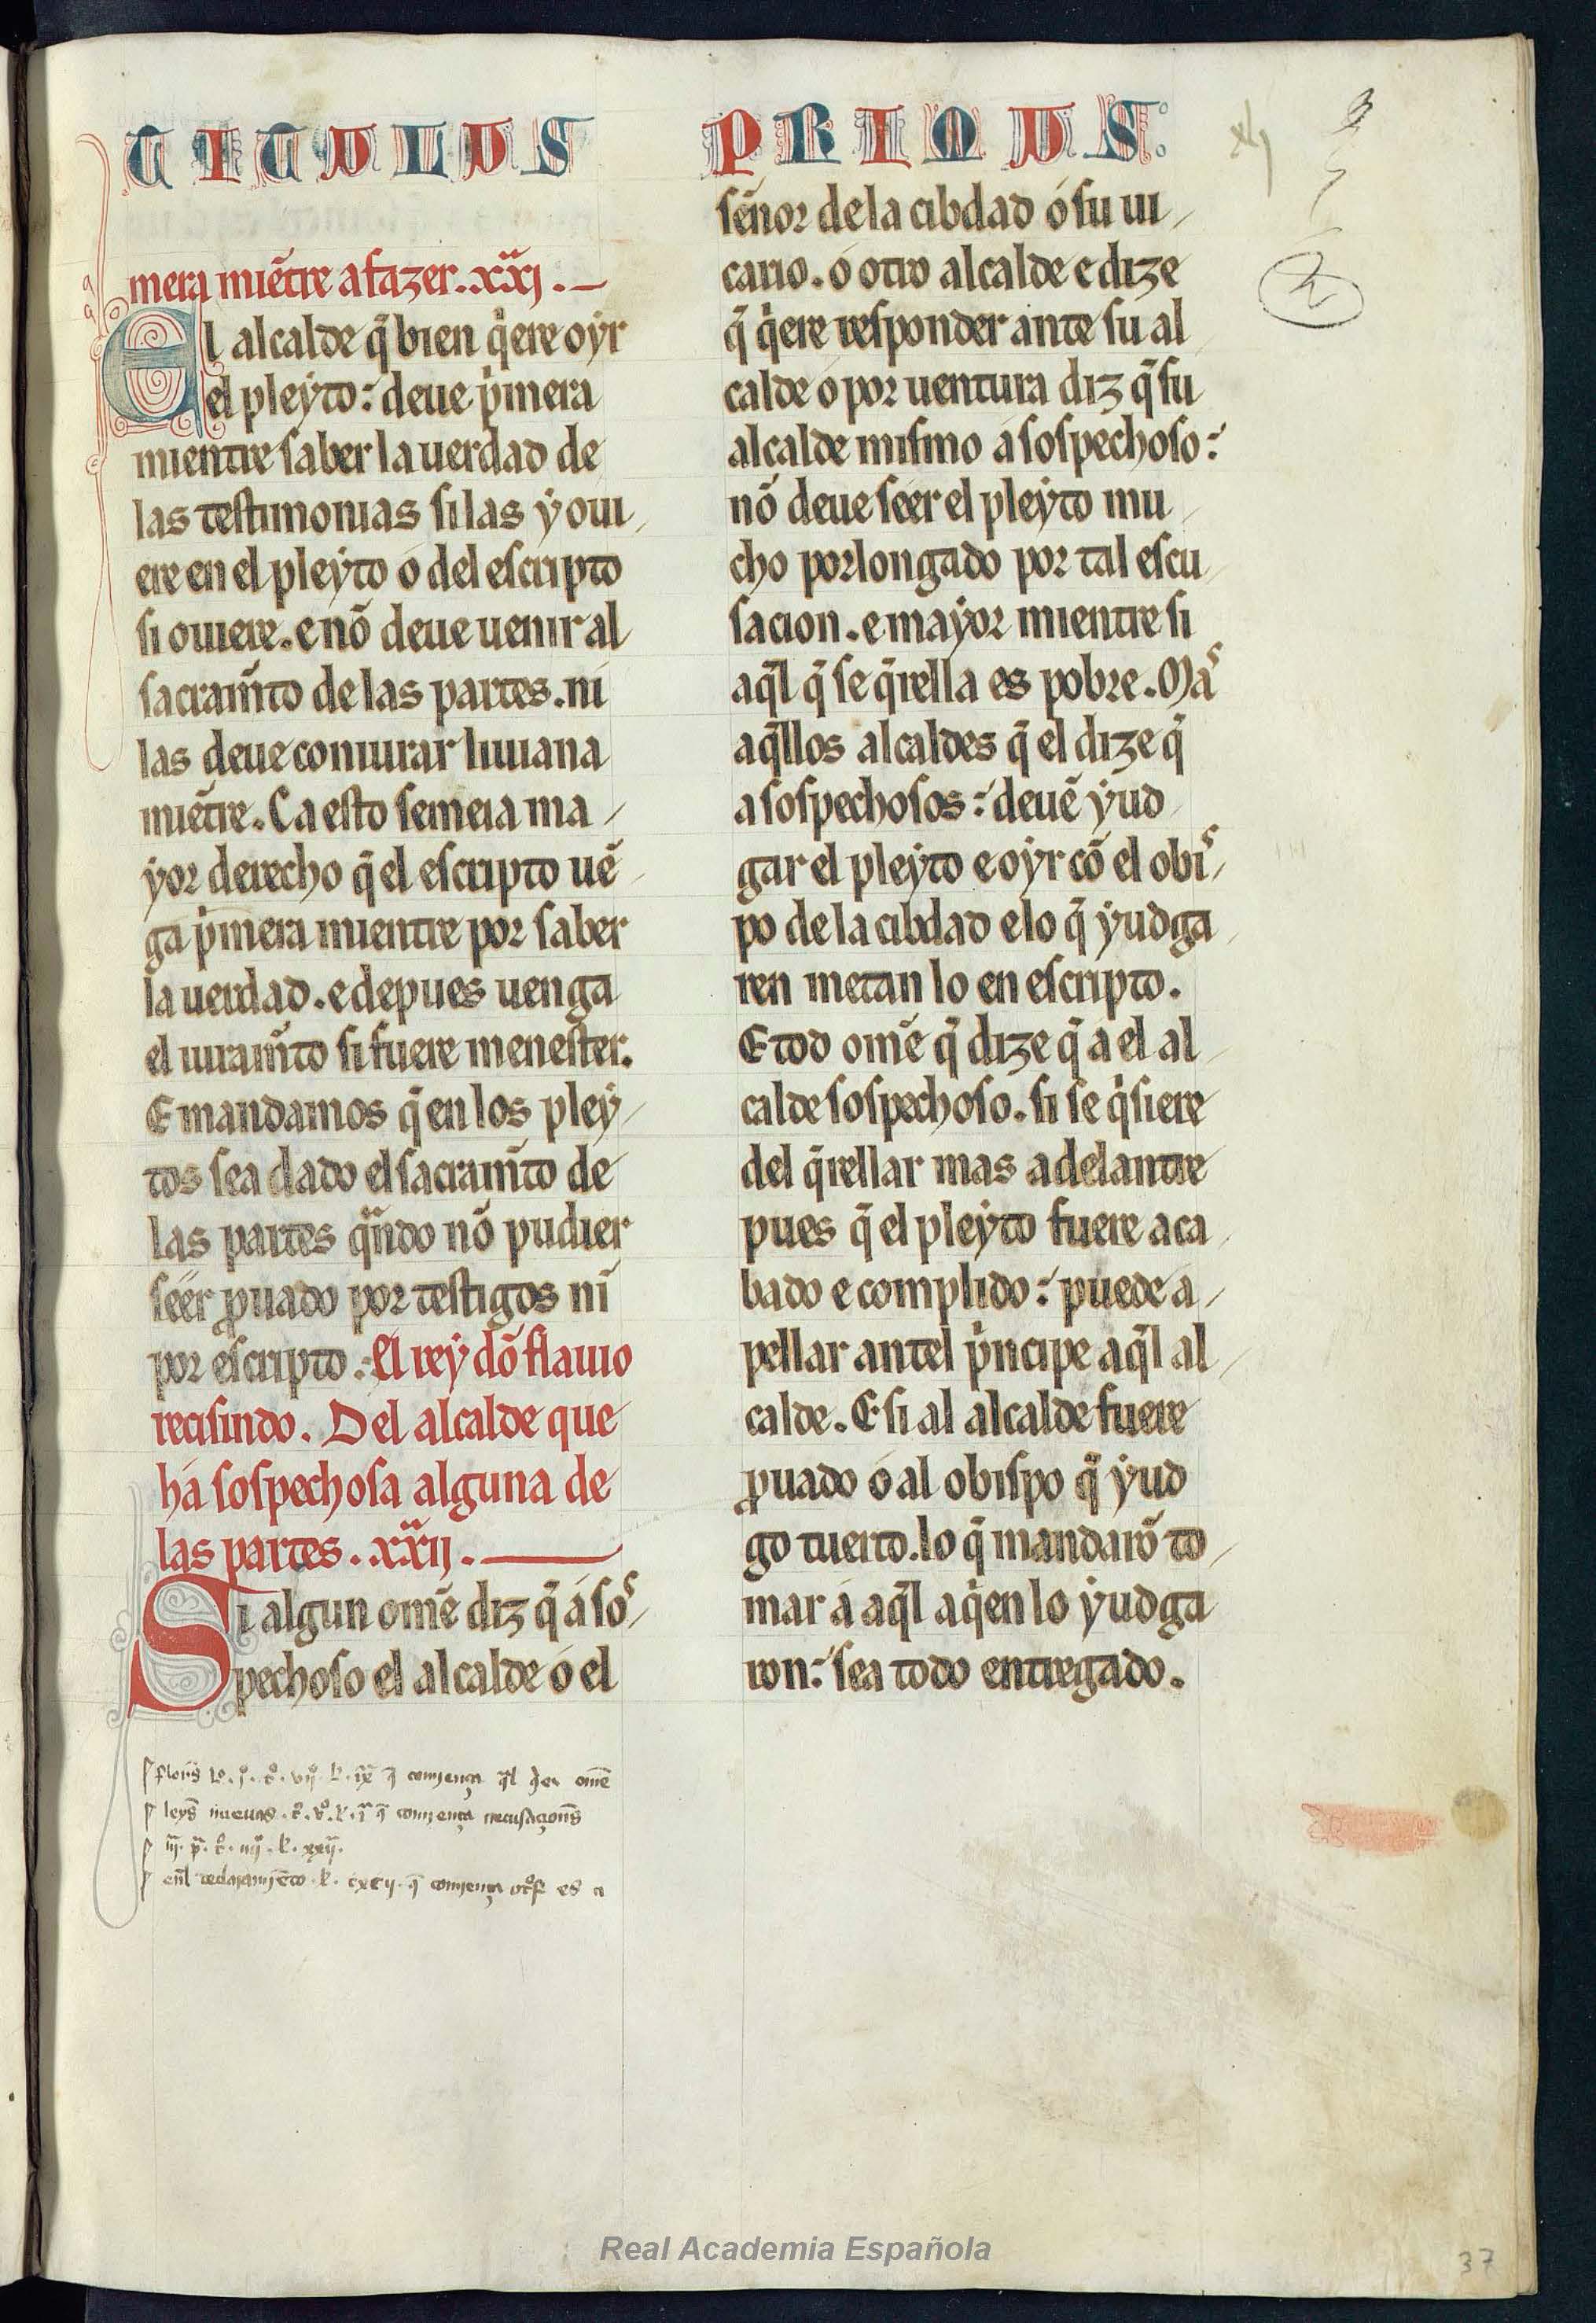 TITULUS PRIMUS:
mera miẽtre a fazer. xxi. —
El alcalde q̃ bien q̇ere oyr
el pleyto: deue ṗmera
mientre saber la uerdad de
las testimonias si las y oui
ere en el pleyto o del escripto
si ouiere. e nõ deue uenir al
sacram̃to de las partes. ni
las deue coniurar liuiana
miẽtre. Ca esto semeia ma
yor derecho q̃ el escripto uẽ
ga ṗmera mientre por saber
la uerdad. e depues uenga
el iuram̃to si fuere menester.
E mandamos q̃ en los pley
tos sea dado el sacram̃to de
las partes qñdo nõ pudier
seer ꝓuado por testigos ni
por escripto. El rey dõ flauio
recisindo. Del alcalde que
há sospechosa alguna de
las partes. xxii. —
Si algun omẽ diz q̃ á sos
pechoso el alcalde o el
señor de la cibdad ó su ui
cario. o otro alcalde e dize
q̃ q̇ere responder ante su al
calde o por uentura diz q̃ su
alcalde mismo á sospechoso:
nõ deue seer el pleyto mu
cho porlongado por tal escu
sacion. e mayor mientre si
aq̃l q̃ se q̃rella es pobre. Mas
aq̃llos alcaldes q̃ el dize q̃
a sospechosos: deuẽ yud
gar el pleyto e oyr cõ el obis
po de la cibdad e lo q̃ yudga
ren metan lo en escripto.
E tod omẽ q̃ dize q̃ á el al
calde sospechoso. si se q̇siere
del q̃rellar mas adelantre
pues q̃ el pleyto fuere aca
bado e complido: puede a
pellar antel ṗncipe aq̃l al
calde. E si al alcalde fuere
ꝓuado ó al obispo q̃ yud
go tuerto. lo q̃ mandarõ to
mar á aq̃l a q̇en lo yudga
ron: sea todo entregado.
leyes nueuas. q̃ comiença recusaçiones
xxij.
q̃ comiença es a
Real Academia Española
37